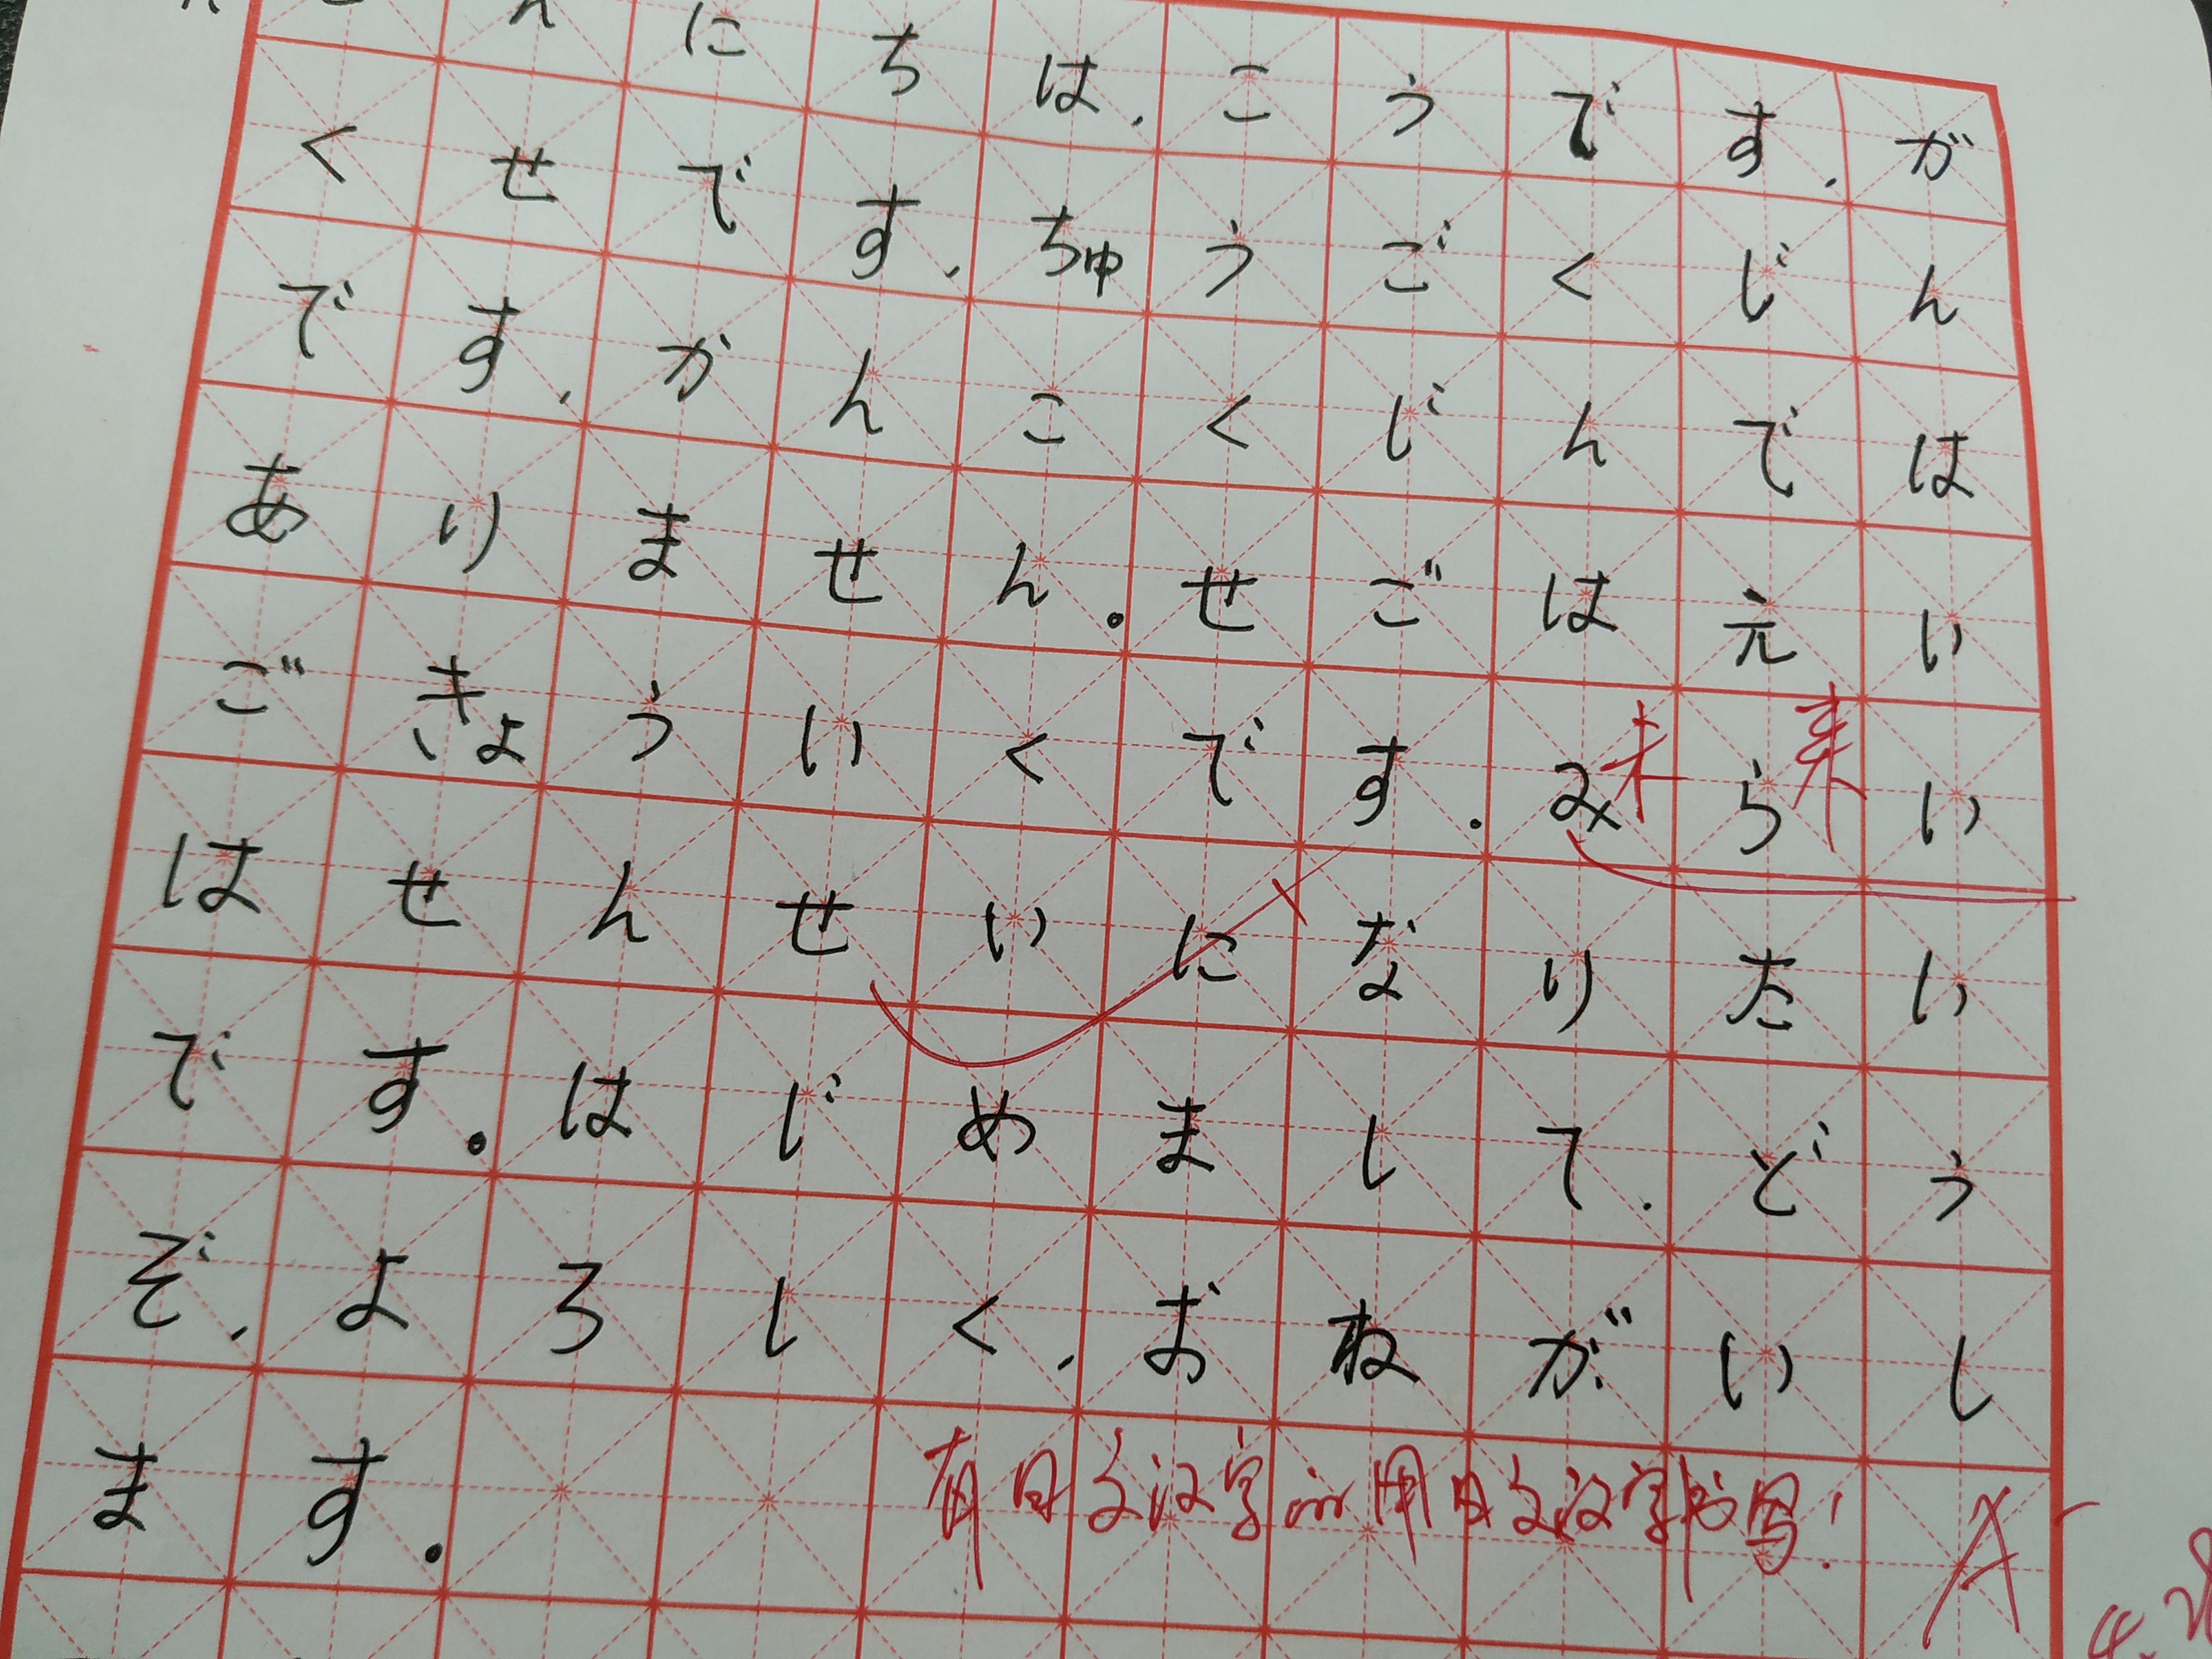 こんにちは、こうです、が
くせです、ちゅうごくじん
です、かんこくじんでは
ありません。せごはえい
ごきょういくです。みらい
未来
はせんせいになりたい
です。はじめまして、どう
ぞ、よろしく、おねがいし
ます。
有日文汉字的用日文汉字书写!
A-